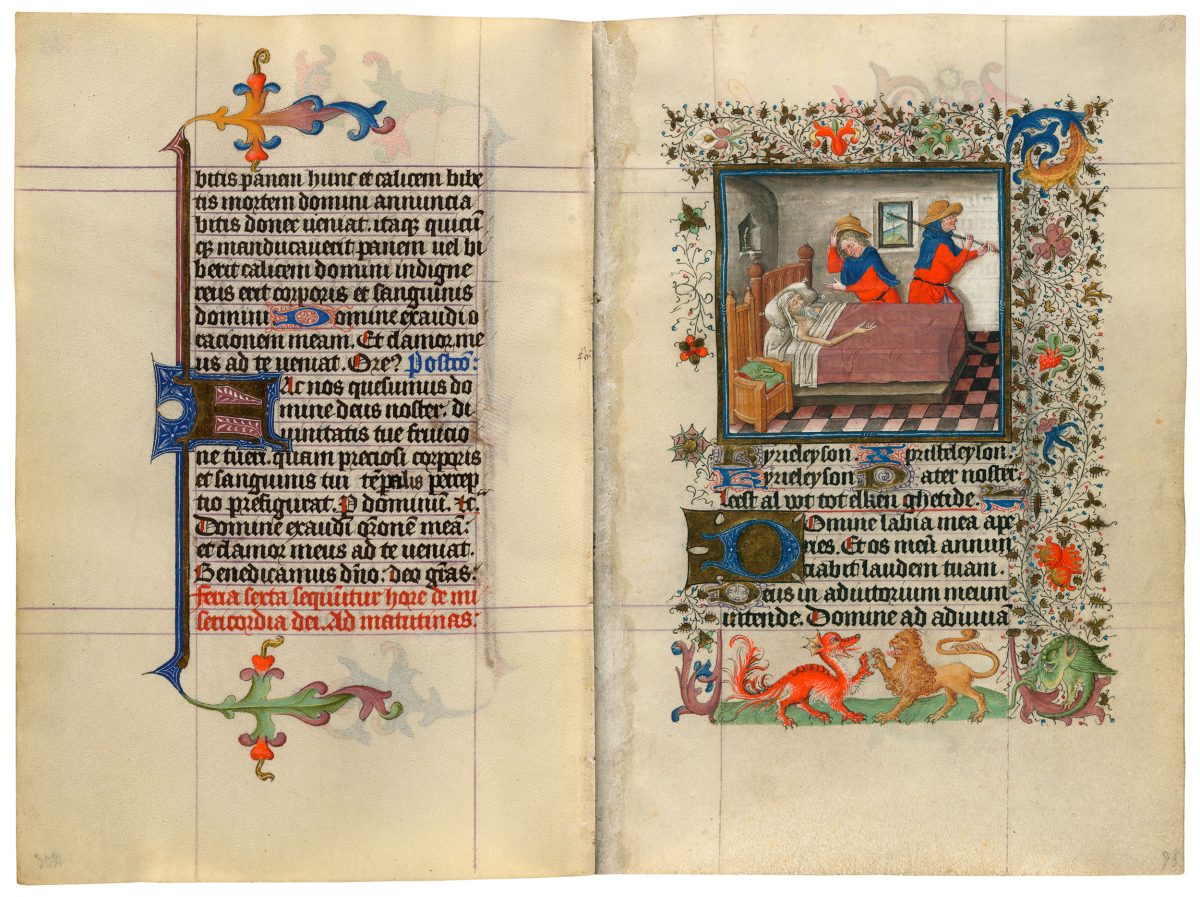 bitis panem hunc et calicem bibe
tis mortem domini annuncia
bitis donec veniat. itaque quicū
qꝫ manducaverit panem vel bi
berit calicem domini indigne
reus erit corporis et sanguinis
domini Domine exaudi o
racionem meam. Et clamor me
us ad te veniat. Ore? Postcō:
Fac nos quesumus do
mine deus noster. di
vinitatis tue fruicio
ne tueri. quam preciosi corporis
et sanguinis tui tēpalis percep
tio prefigurat. P dominum. &c.
Domine exaudi orōnem meā:
et clamor meus ad te veniat.
Benedicamus dño. deo gr̄as:
Feria sexta sequūtur hore de mi
sericordia dei. Ad matutinas:
66
Kyrieleyson Xpristeleyson.
Kyrieleyson Pater noster.
Leest al wt tot elken ghetide.
Domine labia mea ape
ries. Et os meū annun
ciabit laudem tuam.
Deus in adiutorium meum
intende. Domine ad adiuvā